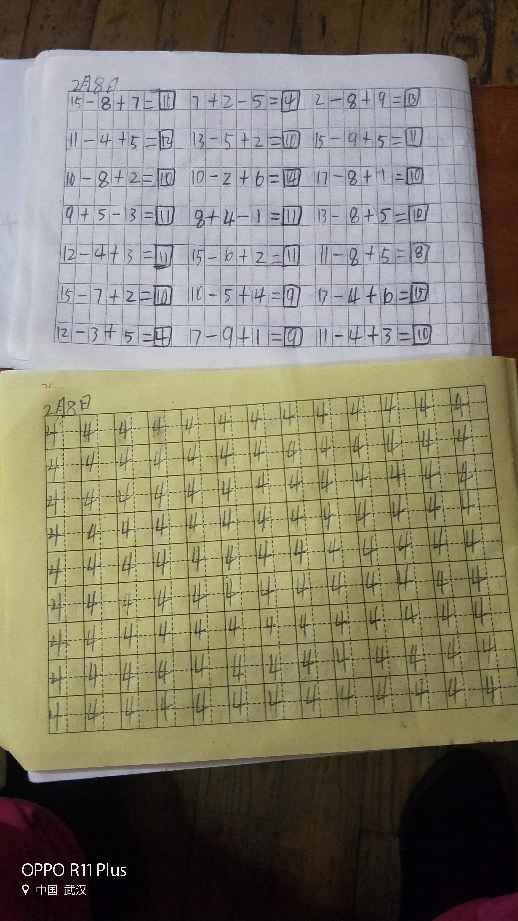 2月8日
15-8+7=11 7+2-5=4 2-8+9=13
11-4+5=12 13-5+2=10 15-9+5=11
10-8+2=10 10-2+6=14 17-8+1=10
9+5-13=11 8+4-1=11 13-8+5=10
12-4+3=11 15-6+2=11 11-8+5=8
15-7+2=10 10-5+4=9 17-4+6=15
12-3+5=4 17-9+1=9 11-4+3=10
2月8日
4 4 4 4 4 4 4 4 4 4 4 4 4
4 4 4 4 4 4 4 4 4 4 4 4 4
4 4 4 4 4 4 4 4 4 4 4 4 4
4 4 4 4 4 4 4 4 4 4 4 4 4
4 4 4 4 4 4 4 4 4 4 4 4 4
4 4 4 4 4 4 4 4 4 4 4 4 4
4 4 4 4 4 4 4 4 4 4 4 4 4
4 4 4 4 4 4 4 4 4 4 4 4 4
4 4 4 4 4 4 4 4 4 4 4 4 4
OPPO R11 Plus
中国 武汉